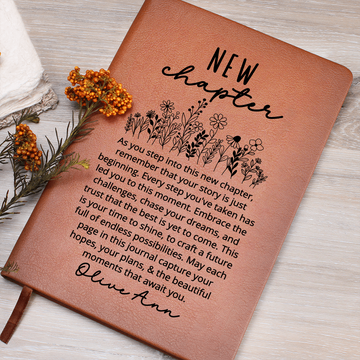 NEW
chapter
As you step into this new chapter
remember that your story is just
beginning. Every step you've taken has
led you to this moment. Embrace the
challenges, chase your dreams, and
trust that the best is yet to come. This
is your time to shine, to craft a future
full of endless possibilities. May each
page in this journal capture your
hopes, your plans, & the beautiful
moments that await you.
Olive Ann